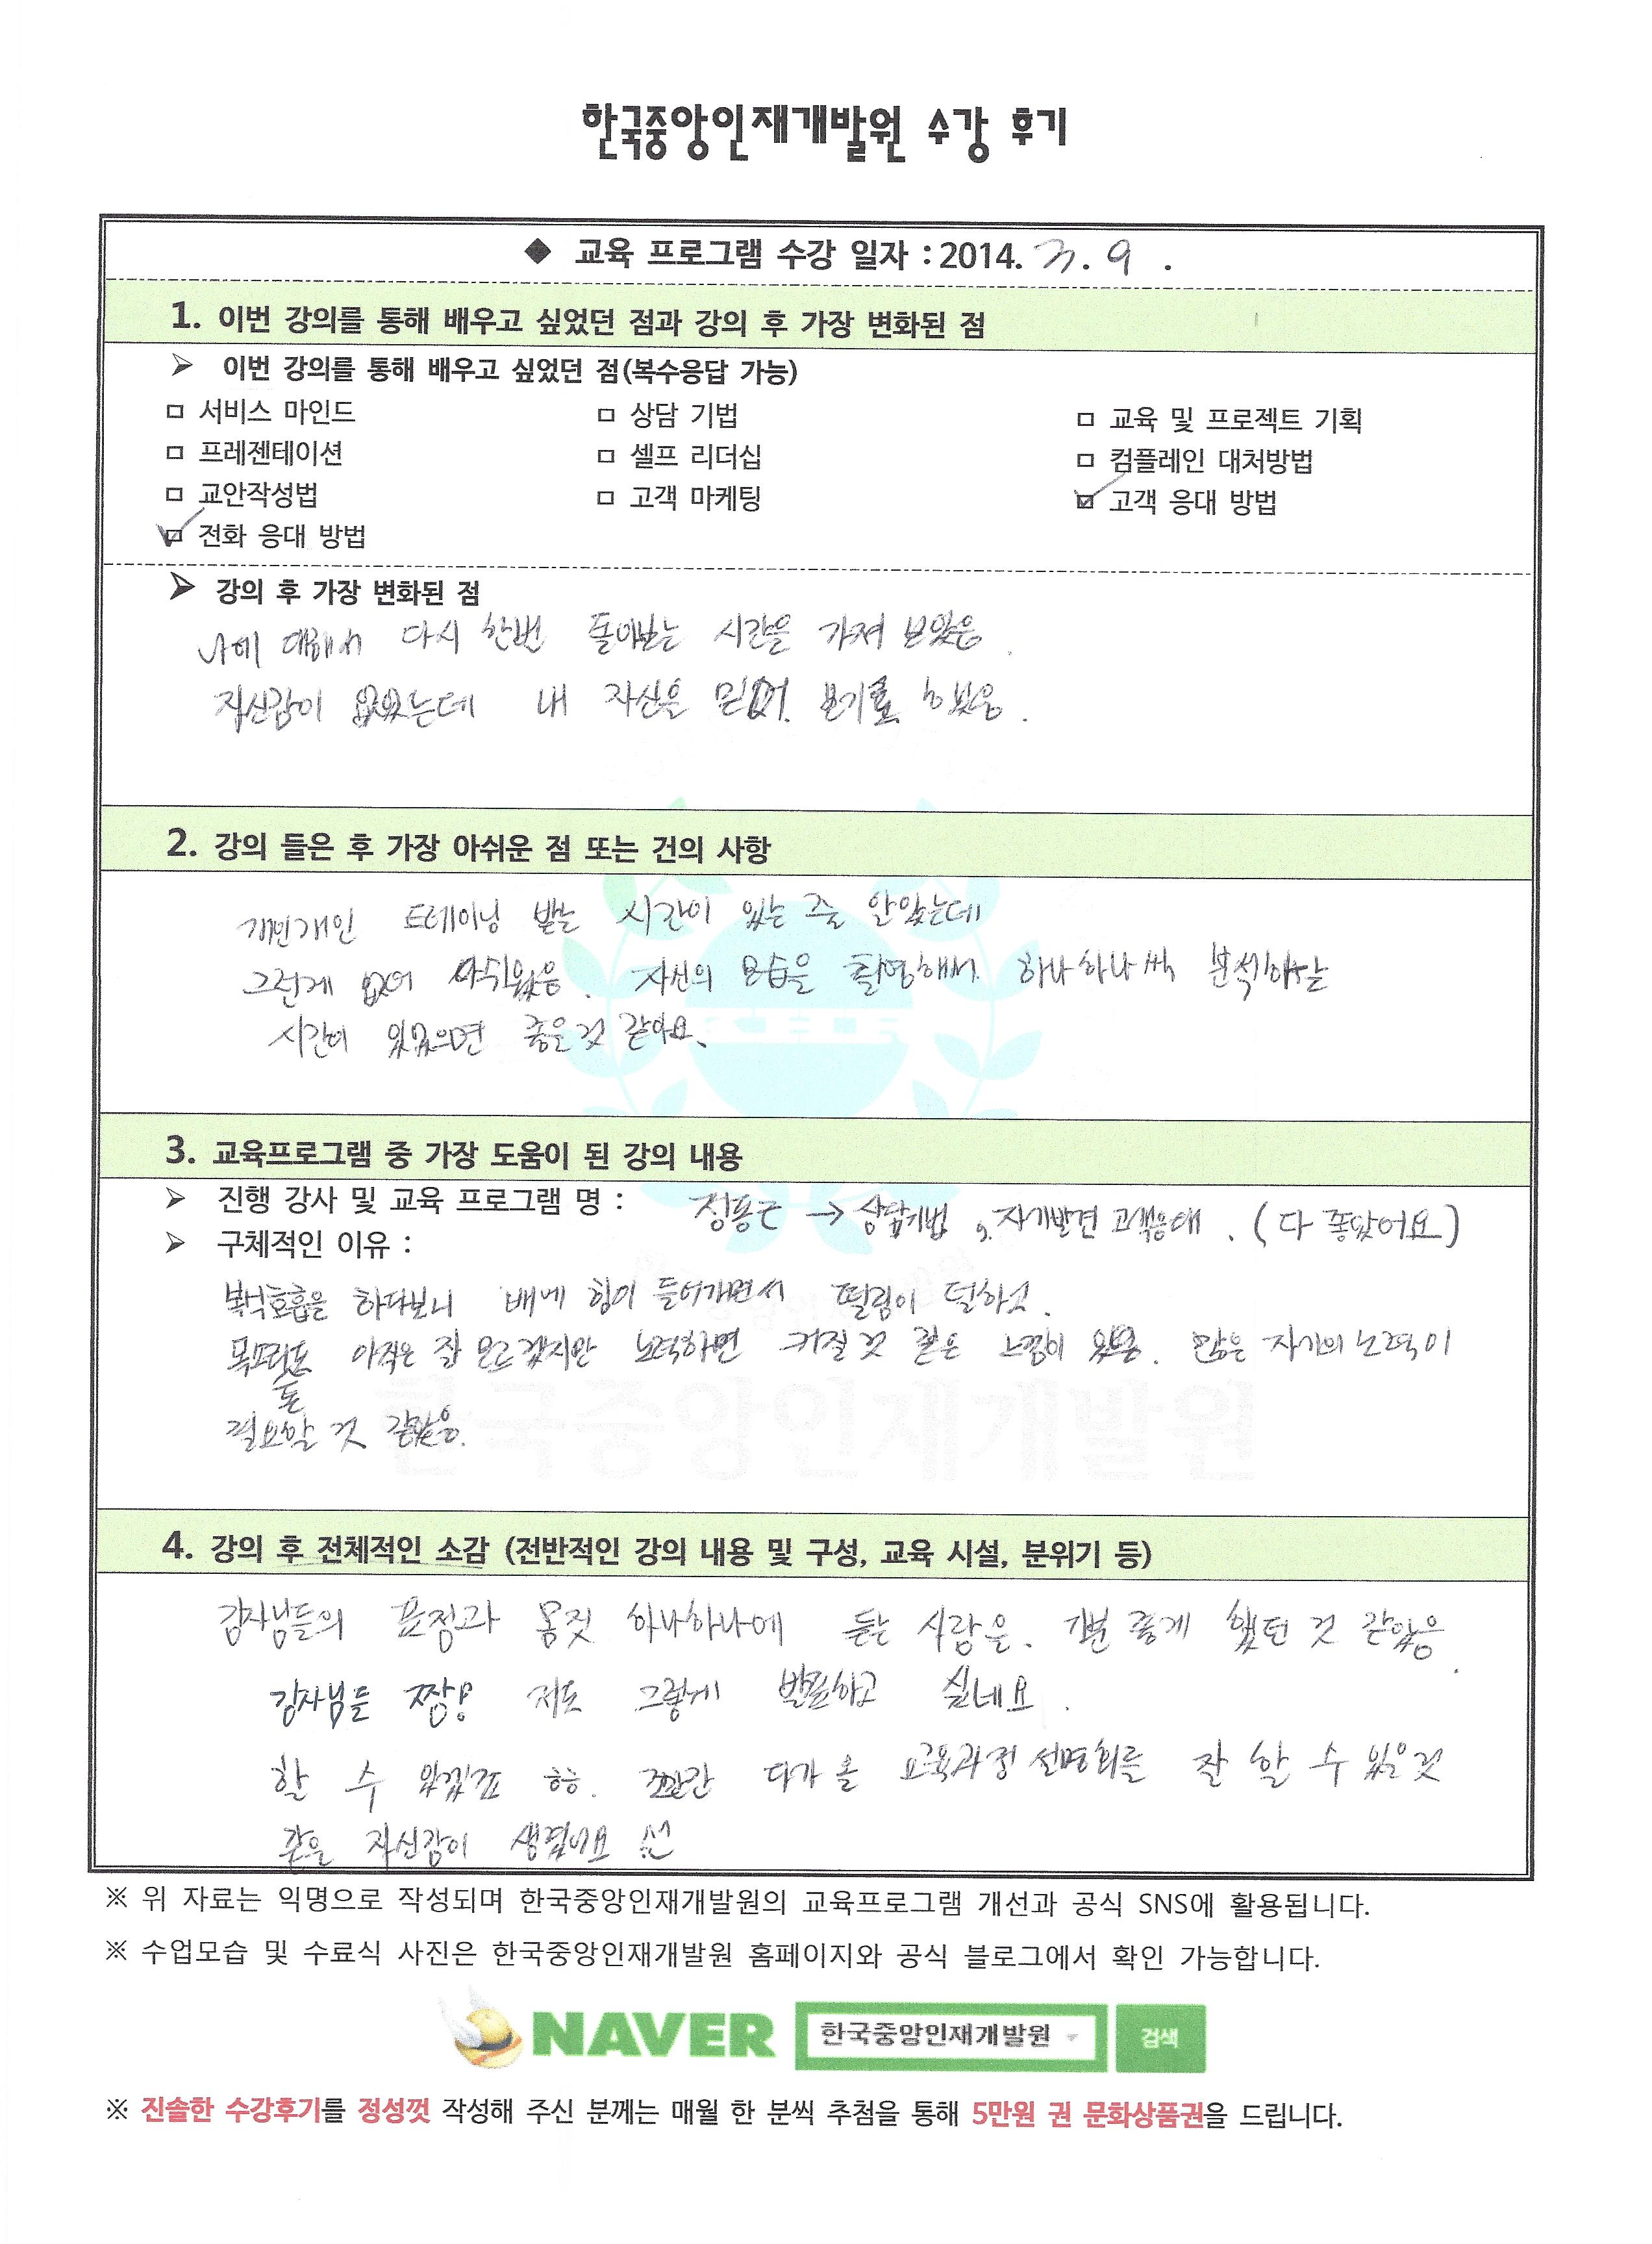 한국중앙인재개발원 수강 후기
◆ 교육 프로그램 수강 일자 : 2014. 3. 9 .
1. 이번 강의를 통해 배우고 싶었던 점과 강의 후 가장 변화된 점
➢ 이번 강의를 통해 배우고 싶었던 점(복수응답 가능)
□ 서비스 마인드 □ 상담 기법 □ 교육 및 프로젝트 기획
□ 프레젠테이션 □ 셀프 리더십 □ 컴플레인 대처방법
□ 교안작성법 □ 고객 마케팅 ☑ 고객 응대 방법
☑ 전화 응대 방법
➢ 강의 후 가장 변화된 점
나에 대해서 다시 한번 돌아보는 시간을 가져 보았음.
자신감이 없었는데 내 자신을 믿어 보기로 하였음.
2. 강의 들은 후 가장 아쉬운 점 또는 건의 사항
개인개인 트레이닝 받는 시간이 있는 줄 알았는데
그런게 없어 아쉬웠음. 자신의 모습을 촬영해서 하나하나씩 분석하는
시간이 있었으면 좋을것 같아요.
3. 교육프로그램 중 가장 도움이 된 강의 내용
➢ 진행 강사 및 교육 프로그램 명 : 정용근 → 상담기법, 자기발견 고객응대. (다 좋았어요)
➢ 구체적인 이유 :
복식호흡을 하다보니 배에 힘이 들어가면서 떨림이 덜하고.
아직은 잘 모르겠지만 노력하면 커질 것 같은 느낌이 있음. 많은 자기의 노력이
필요할 것 같았음.
4. 강의 후 전체적인 소감 (전반적인 강의 내용 및 구성, 교육 시설, 분위기 등)
강사님들의 표정과 몸짓 하나하나에 듣는 사람은. 기분 좋게 했던 것 같았음.
강사님들 짱! 저도 그렇게 발표하고 싶네요.
할 수 있겠죠 ㅎㅎ. 조만간 다가 올 교육과정 설명회를 잘 할 수 있을것
같은 자신감이 생겼어요
※ 위 자료는 익명으로 작성되며 한국중앙인재개발원의 교육프로그램 개선과 공식 SNS에 활용됩니다.
※ 수업모습 및 수료식 사진은 한국중앙인재개발원 홈페이지와 공식 블로그에서 확인 가능합니다.
NAVER 한국중앙인재개발원 검색
※ 진솔한 수강후기를 정성껏 작성해 주신 분께는 매월 한 분씩 추첨을 통해 5만원 권 문화상품권을 드립니다.